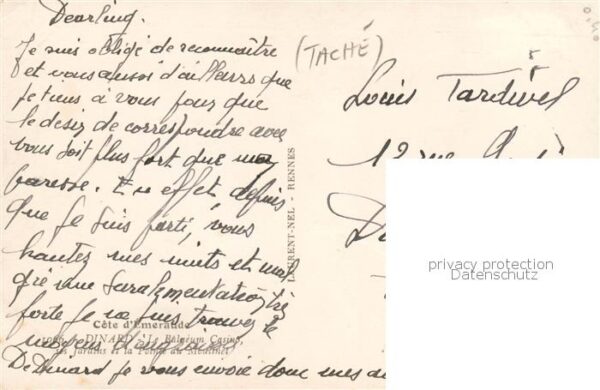 Dearling.
Je suis obligé de reconnaître
et vous aussi d'ailleurs que
je tiens à vous pour que
le desir de correspondre avec
vous soit plus fort que ma
paresse. En effet depuis
que je suis parti, vous
hantez mes nuits et mal
gré une suralimentation très
forte je ne puis trouver le
De Dinard je vous envoie donc mes
(TACHÉ)
Louis Tardivel
12 rue
LAURENT-NEL - RENNES
Côte d'Emeraude
DINARD - Le Balneum Casino,
les Jardins et la Pointe du Moulinet
privacy protection
Datenschutz